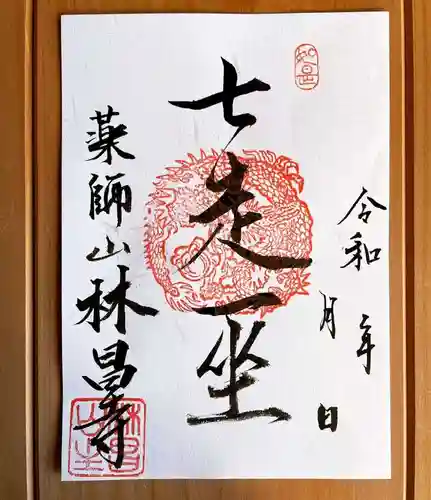 令和 年
月 日
七走一坐
薬師山林昌寺